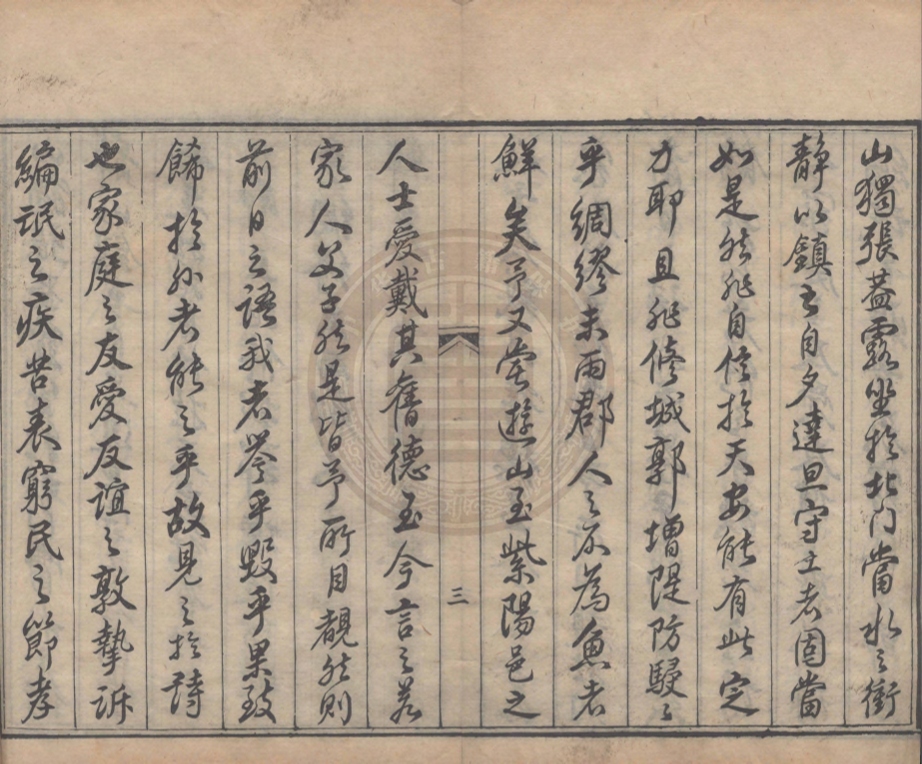 山獨張蓋露坐於北门當水之衝
靜以鎮之自夕達旦守土者固當
如是然非自信於天安能有此定
力耶且非修城郭增隄防駸駸
乎綢繆未雨郡人之不為魚者
鮮矣予又嘗遊山至紫陽邑之
三
人士愛戴其舊德至今言之若
家人父子然是皆予所目覩然則
前日之語我者譽乎毀乎果致
餙於外者能之乎故見之於詩
也家庭之友愛友誼之敦摯訴
編氓之疾苦表窮民之節孝